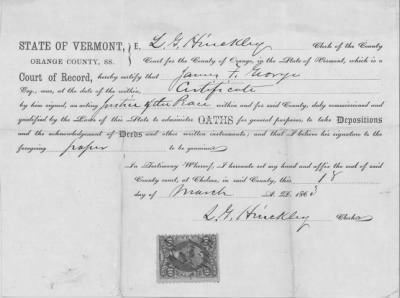 STATE OF VERMONT, I, L. G. Hinckley Clerk of the County
ORANGE COUNTY, SS. Court for the County of Orange, in the State of Vermont, which is a
Court of Record, hereby certify that James F. George
Esq., was, at the date of the within, Certificate
by him signed, an acting Justice of the Peace within and for said County, duly commissioned and
qualified by the Laws of this State to administer OATHS for general purposes, to take Depositions
and the acknowledgment of Deeds and other written instruments; and that I believe his signature to the
foregoing paper to be genuine.
In Testimony Whereof, I hereunto set my hand and affix the seal of said
County court, at Chelsea, in said County, this 18
day of March A. D. 1863
L. G. Hinckley Clerk